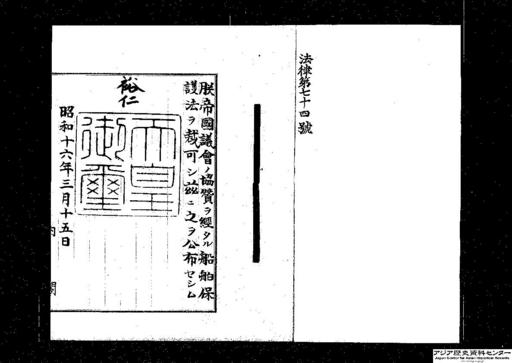 法律第七十四號
朕帝國議會ノ協贊ヲ經タル船舶保
護法ヲ裁可シ茲ニ之ヲ公布セシム
裕仁
天皇
御璽
昭和十六年三月十五日
内閣
アジア歴史資料センター
Japan Center for Asian Historical Records